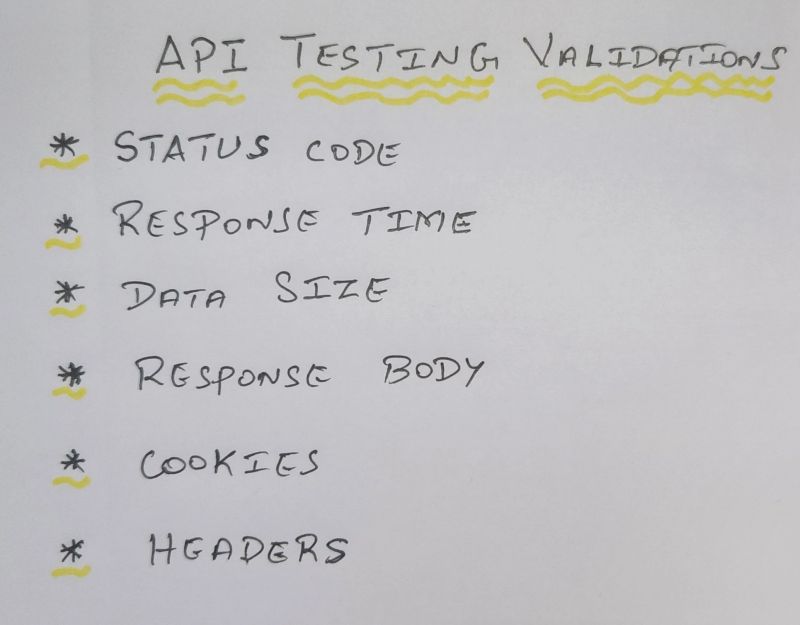 API TESTING VALIDATIONS
* STATUS CODE
* RESPONSE TIME
* DATA SIZE
* RESPONSE BODY
* COOKIES
* HEADERS